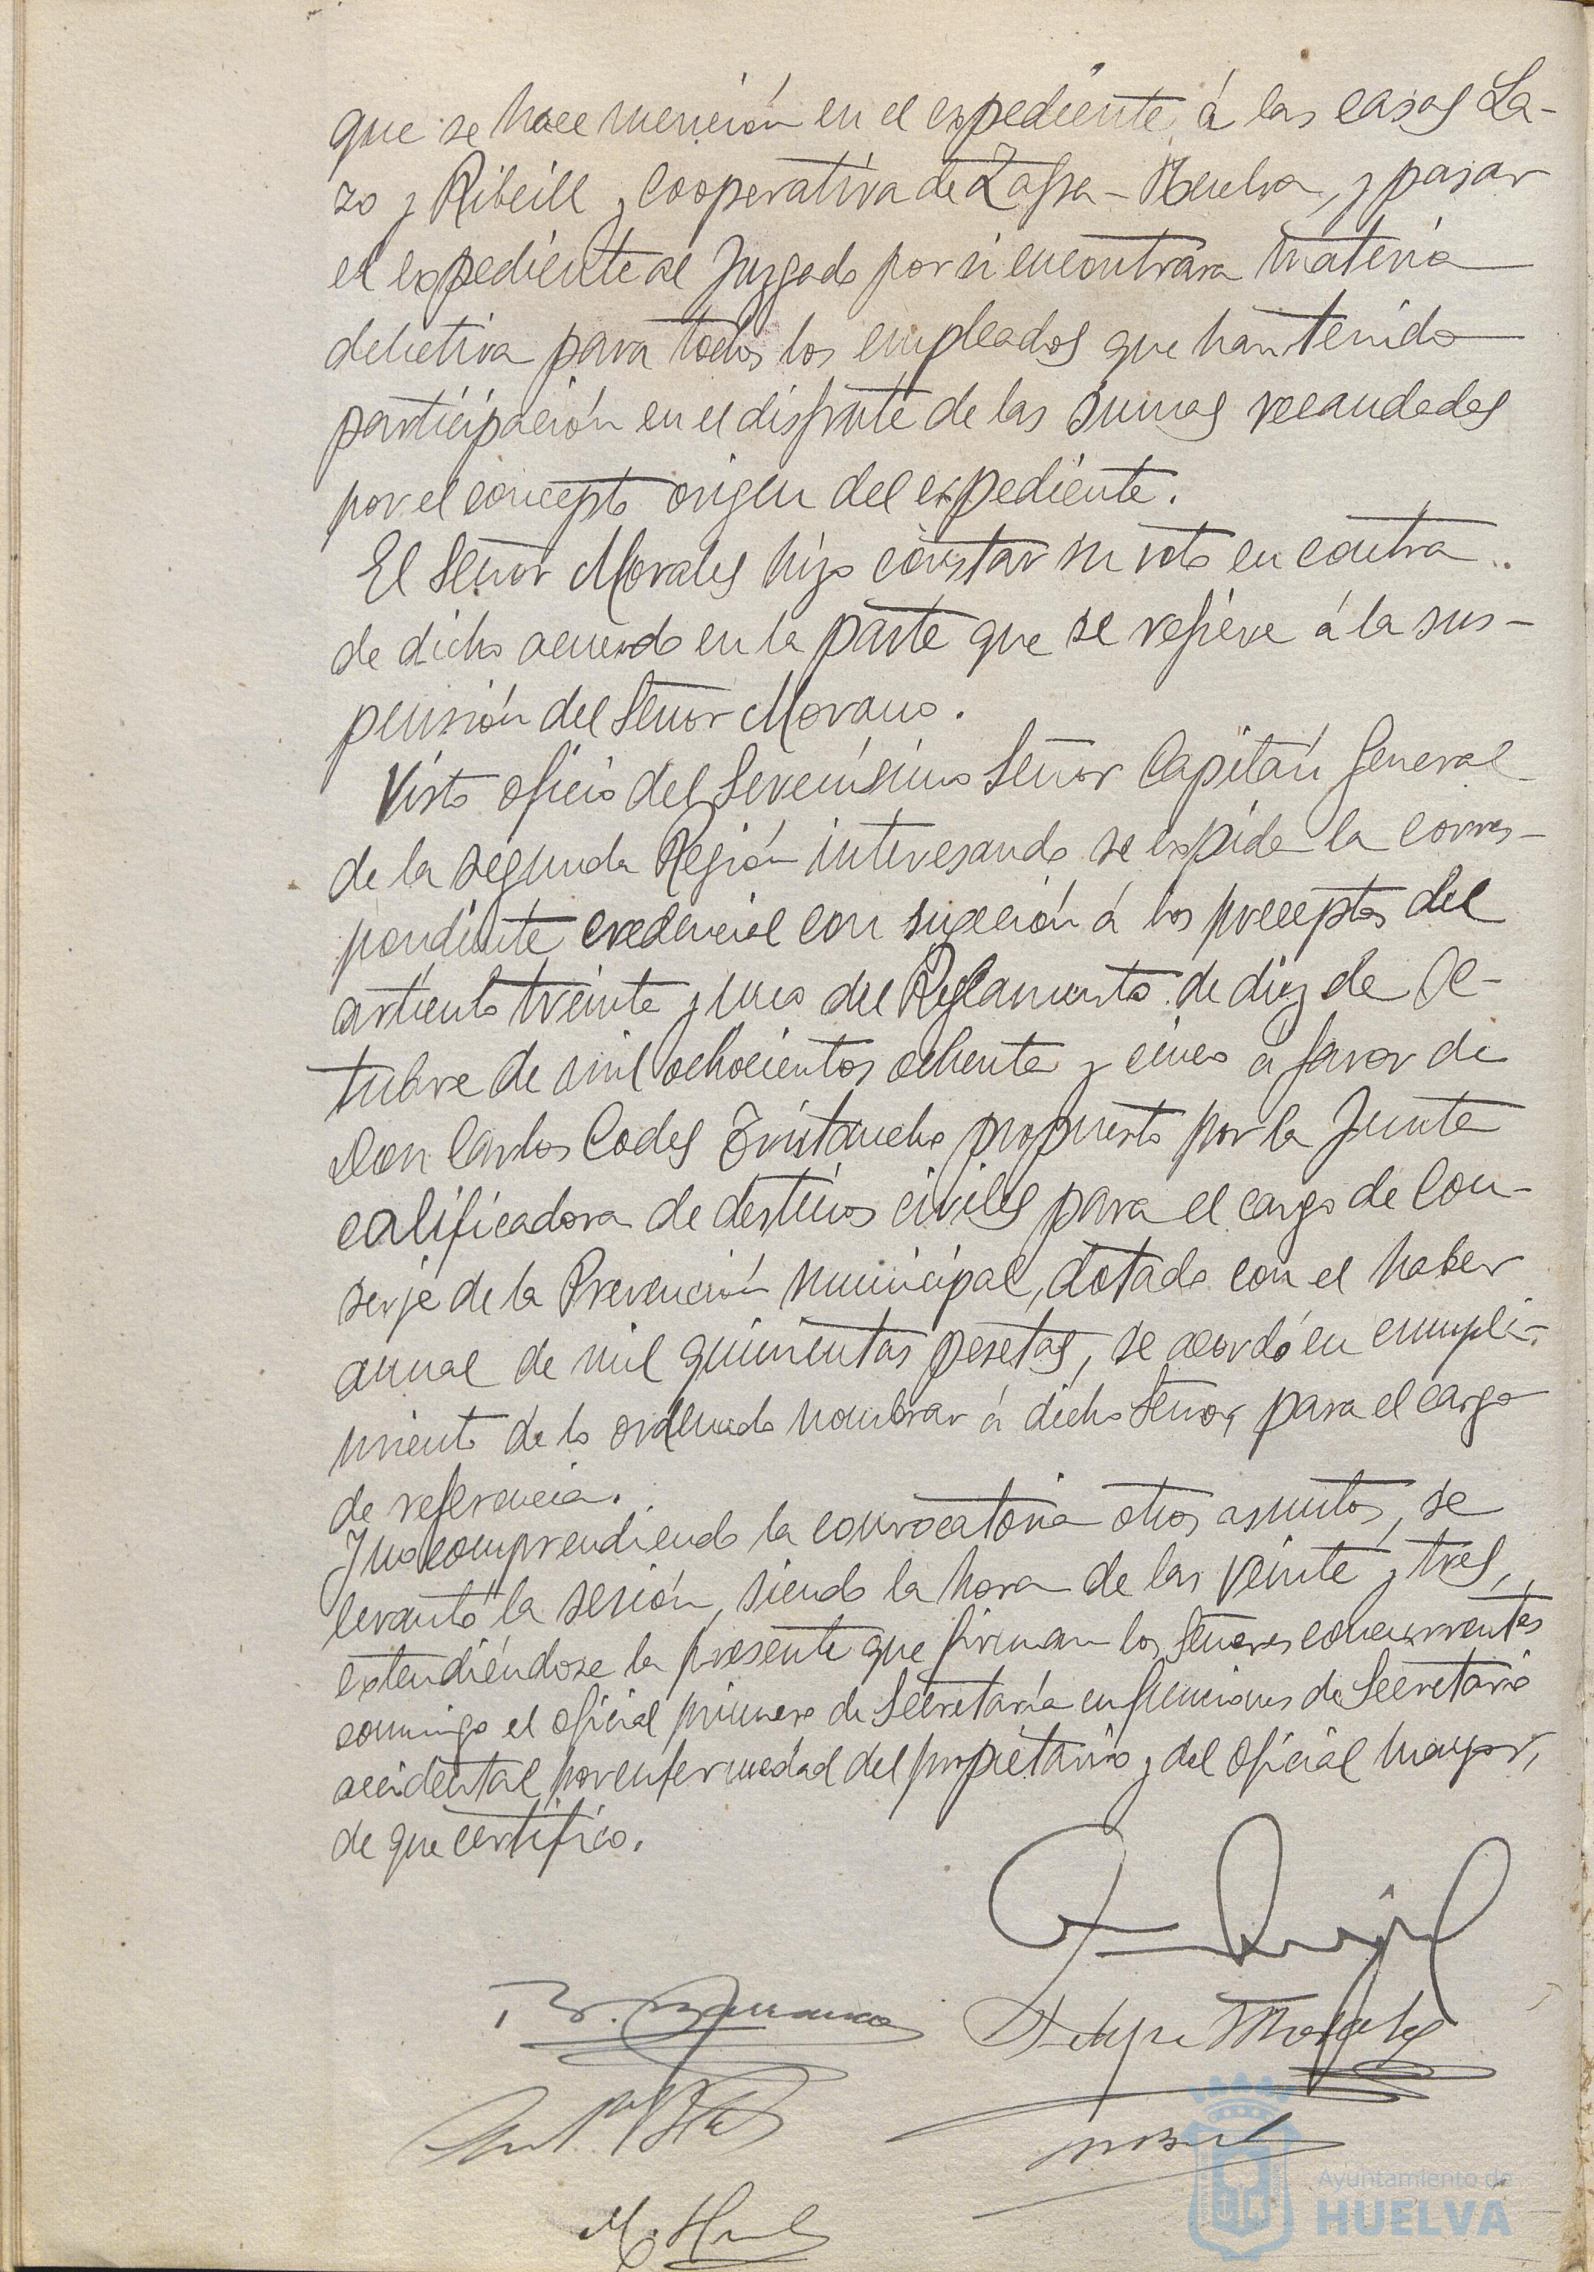 que se hace mención en el expediente á las casas La-
zo y Ribeill y Cooperativa de Zafra-Huelva, y pasar
el expediente al Juzgado por si encontrara materia
delictiva para todos los empleados que han tenido
participación en el disfrute de las sumas recaudadas
por el concepto origen del expediente.
El Señor Morales hizo constar su voto en contra
de dicho acuerdo en la parte que se refiere á la sus-
pensión del Señor Morano.
Visto oficio del Serenísimo Señor Capitán General
de la segunda Región interesando se expida la corres-
pondiente credencial con sugeción á los preceptos del
artículo treinta y uno del Reglamento de diez de Oc-
tubre de mil ochocientos ochenta y cinco a favor de
Don Carlos Codes Tristancho propuesto por la Junta
calificadora de destinos civiles para el cargo de Con-
serje de la Prevención municipal, dotado con el haber
anual de mil quinientas pesetas, se acordó en cumpli-
miento de lo ordenado nombrar á dicho Señor, para el cargo
de referencia.
Y no comprendiendo la convocatoria otros asuntos, se
levantó la sesión, siendo la hora de las veinte y tres,
extendiéndose la presente que firman los Señores concurrentes
conmigo el oficial primero de Secretaría en funciones de Secretario
accidental por enfermedad del propietario y del oficial mayor,
de que certifico.
Felipe Morales
Ayuntamiento de
HUELVA